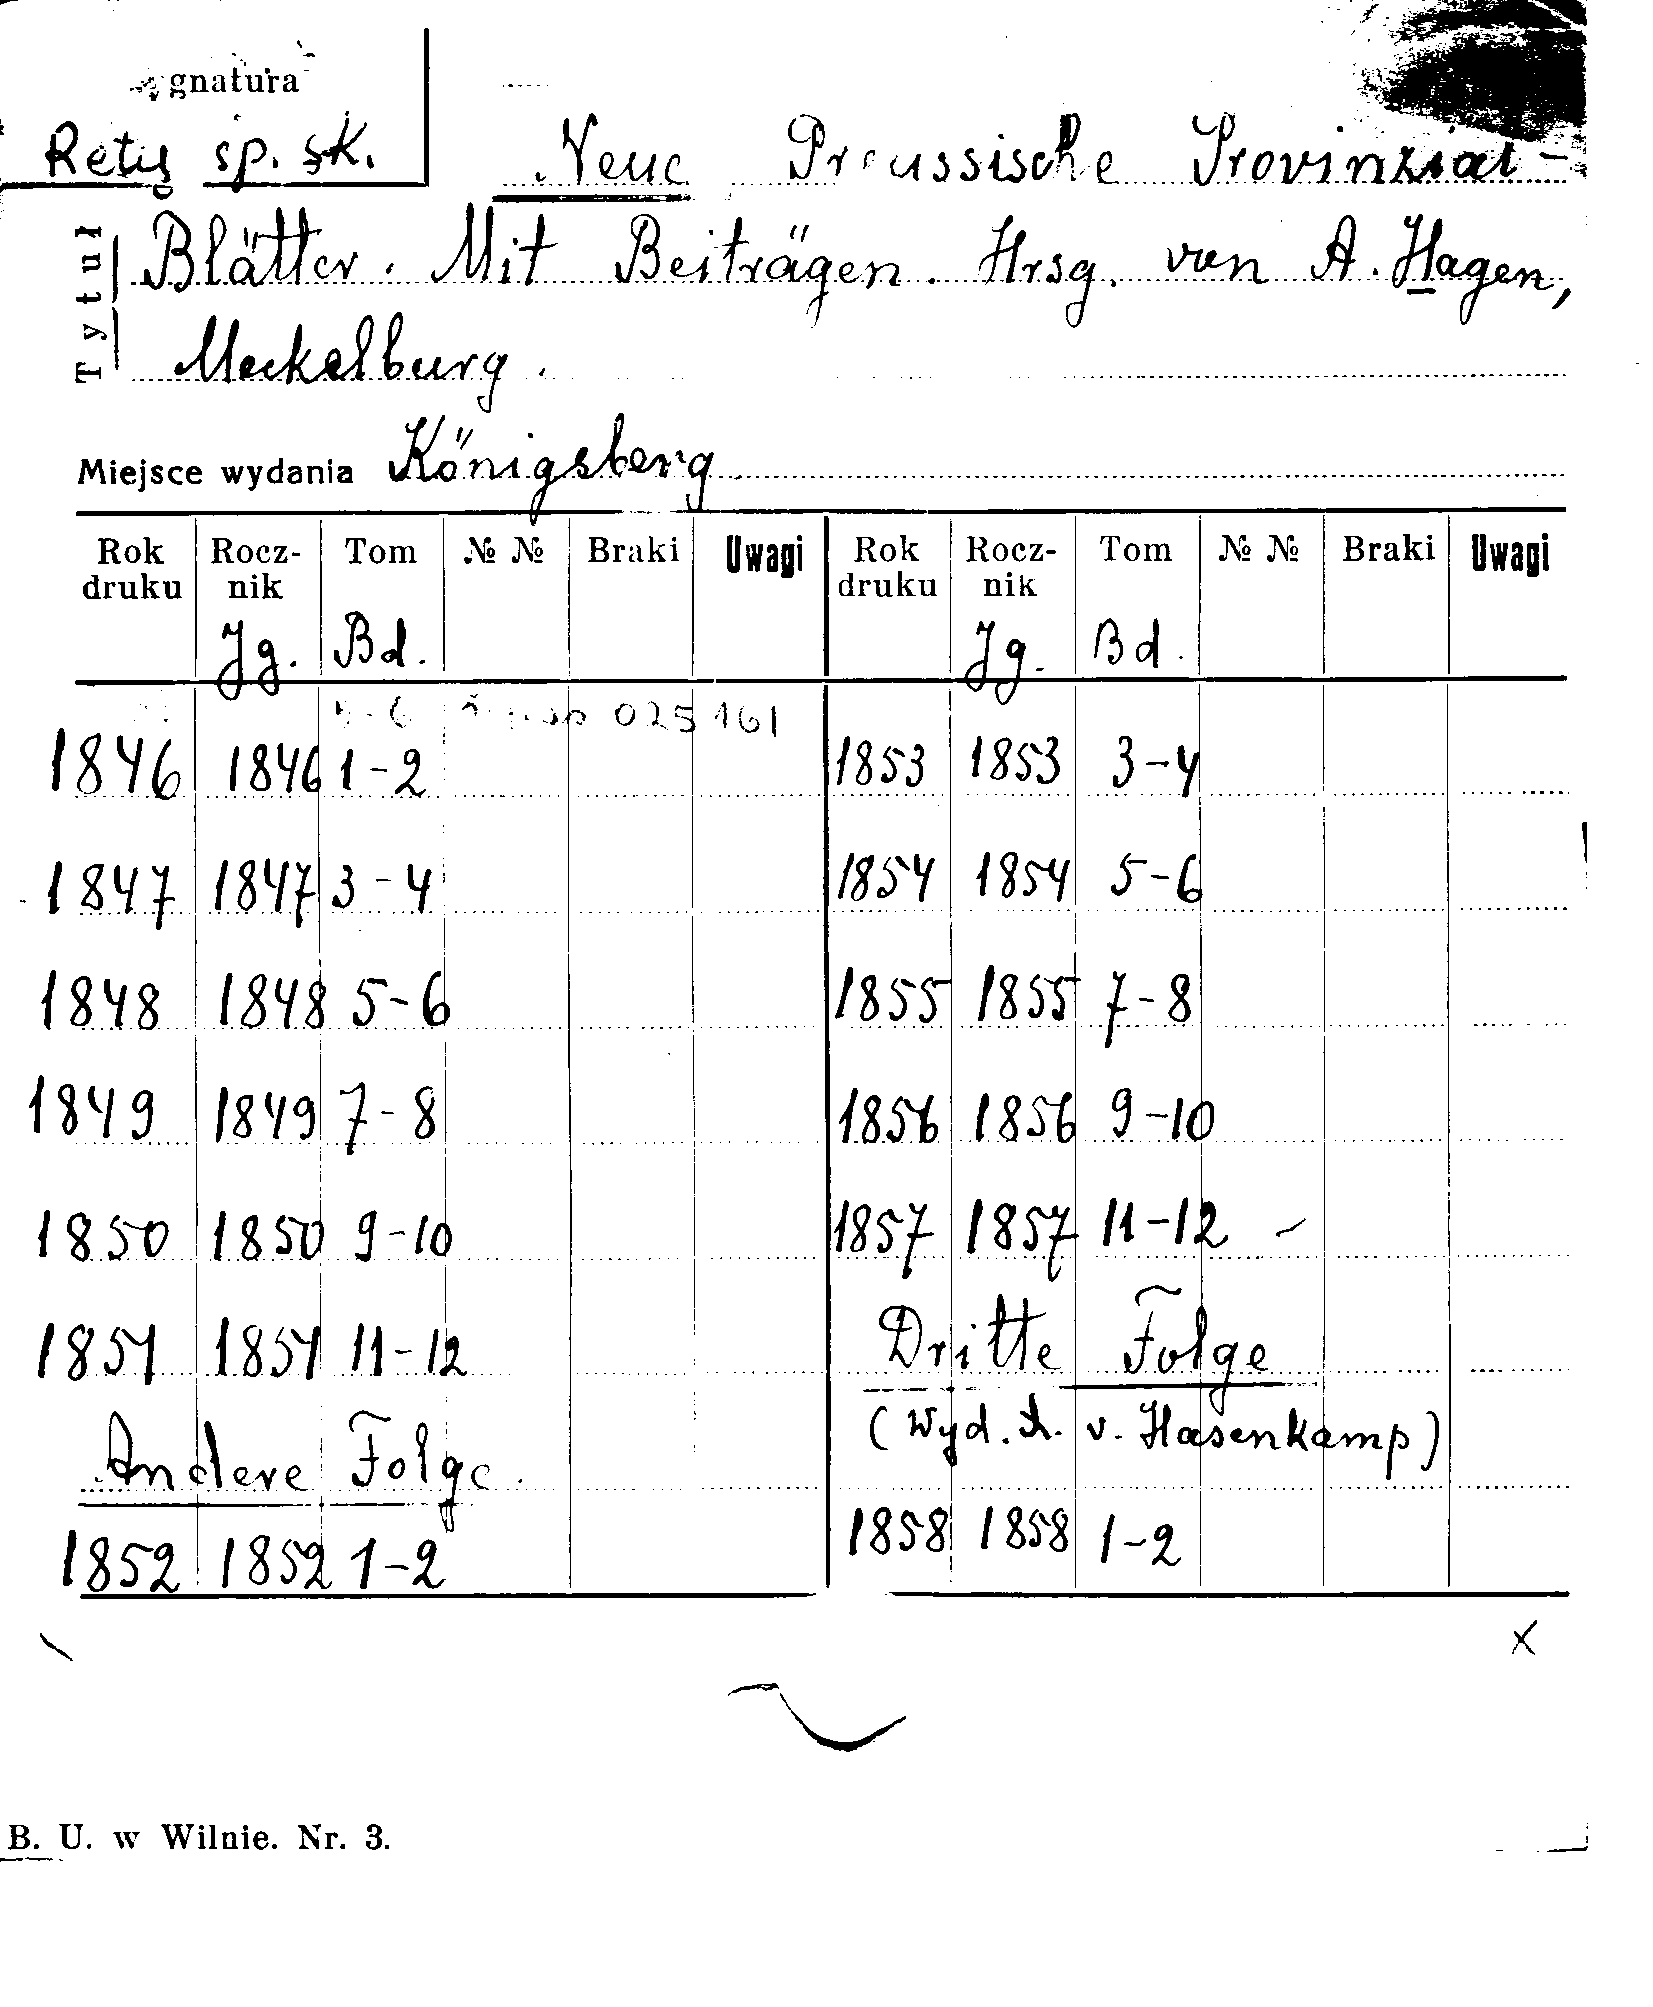 gnatura
Retų sp. sk.
Neue Preussische Provinzial-
Tytuł
Blätter. Mit Beiträgen. Hrsg. von A. Hagen,
Meckelburg.
Miejsce wydania Königsberg
Rok druku Rocz-nik Tom № № Braki Uwagi Rok druku Rocz-nik Tom № № Braki Uwagi
Jg. Bd. Jg. Bd.
5-6 025161
1846 1846 1-2 1853 1853 3-4
1847 1847 3-4 1854 1854 5-6
1848 1848 5-6 1855 1855 7-8
1849 1849 7-8 1856 1856 9-10
1850 1850 9-10 1857 1857 11-12 -
1851 1851 11-12 Dritte Folge
Andere Folge. (Wyd. A. v. Hasenkamp)
1852 1852 1-2 1858 1858 1-2
x
B. U. w Wilnie. Nr. 3.